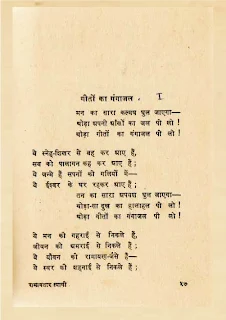 गीतों का गंगाजल . I
मन का सारा कल्मष धुल जाएगा—
थोड़ा अपनी आँखों का जल पी लो !
थोड़ा गीतों का गंगाजल पी लो !
ये स्नेह-शिखर से बह कर आए हैं,
सब को पालागन कह कर आए हैं;
ये जन्मे हैं सपनों की गलियों में—
ये ईश्वर के घर रहकर आए हैं;
तन का सारा अपयश धुल जाएगा—
थोड़ा-सा दुख का हालाहल पी लो !
थोड़ा गीतों का गंगाजल पी लो !
ये मन की गहराई से निकले हैं,
जीवन की अमराई से निकले हैं;
ये यौवन की रामायण-जैसे हैं—
ये स्वर की शहनाई से निकले हैं;
रामावतार त्यागी
५७